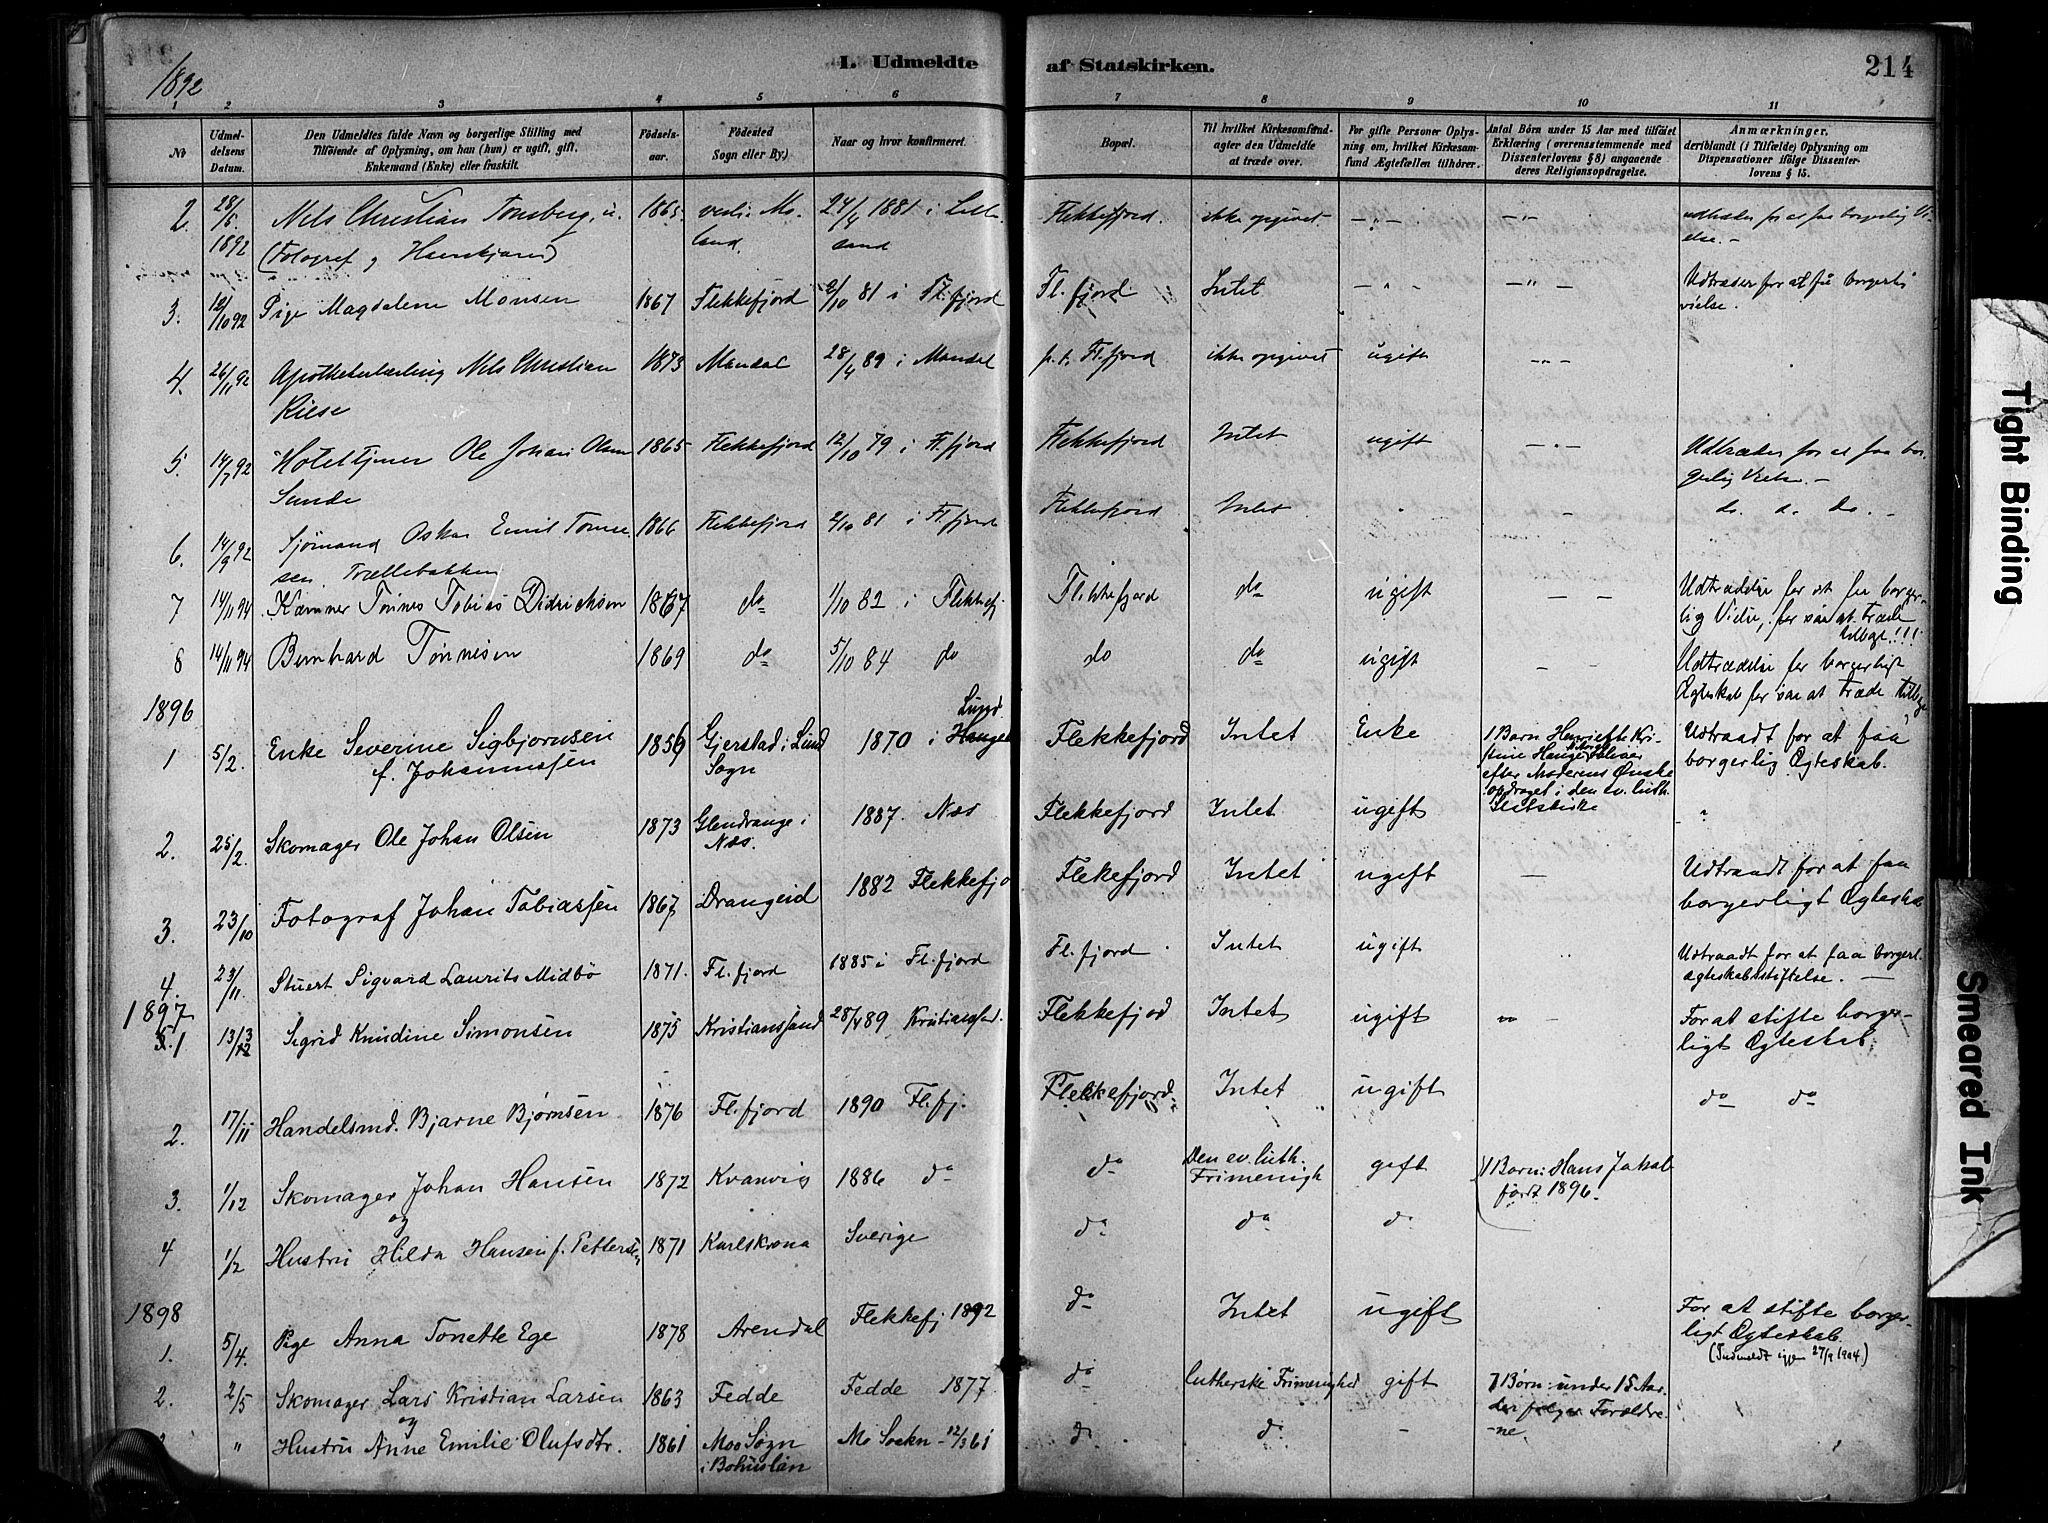 1892
L. Udmeldte af Statskirken. 214
1 2 3 4 5 6 7 8 9 10 11
No
Udmel-
delsens
Datum.
Den Udmeldtes fulde Navn og borgerlige Stilling med
Tilföiende af Oplysning, om han (hun) er ugift, gift,
Enkemand (Enke) eller fraskilt.
Födsels-
aar.
Födested
Sogn eller By)
Naar og hvor konfirmeret.
Bopæl.
Til hvilket Kirkesamfund-
agter den Udmeldte
at træde over.
For gifte Personer Oplys-
ning om, hvilket Kirkesam-
fund Ægtefællen tilhörer.
Antal Börn under 15 Aar med tilföiet
Erklæring (overensstemmende med
Dissenterlovens § 8) angaaende
deres Religionsopdragelse.
Anmærkninger,
deriblandt (i Tilfælde) Oplysning om
Dispensationer ifölge Dissenter-
lovens § 15.
2. 28/6 1892 Nels Christian Tonsberg, u. 1865 Mo- 24/4 1881 i Lille- Flekkefjord. ikke opgivet - " - - " - borgerlig Vi-
(Fotograf land. sand else. -
3. 12/10 92 Pige Magdalene Monsen 1867 Flekkefjord 2/10 81 i Fl.fjord Fl.fjord Intet - " - - " - Udtræder for at få borgerli
vielse.
4. 26/11 92 Apothekerlærling Nels Christian 1873 Mandal 28/4 89 i Mandal p. t. Fl.fjord ikke opgivet ugift - " -
Riese
5. 14/7 92 Hoteltjener Ole Johan Olsen 1865 Flekkefjord 12/10 79 i Fl.fjord Flekkefjord Intet ugift - " - Udtræder for at faa bor-
Sunde gerlig Vielse. -
6. 14/9 92 Sjømand Oskar Emil Tonne- 1866 Flekkefjord 2/10 81 i Fl.fjord Flekkefjord Intet " - do. do. -
sen. Trællebakken
7 14/11 94 Kæmner Tønnes Tobias Didrichsen 1867 do 1/10 82 i Flekkefj Flekkefjord do ugift - - Udtrædelse for at faa borger-
lig Vielse, for saa at træde
tilbage!!!
8 14/11 94 Bernhard Tønnesen 1869 do 5/10 84 do do do ugift - - Udtrædelse for borgerligt
Ægteskab for saa at træde tilbage
1896
1 5/2. Enke Severine Sigbjørnsen 1856 Gjerstad i Lund 1870 i Lund. Flekkefjord Intet Enke 1 Barn Henriette Kri- Udtraadt for at faa
f. Johannessen Sogn stine Hauge borgerlig Ægteskab.
efter Moderens Ønske
opdraget i den ev. luth.
Statskirke
2. 25/2. Skomager Ole Johan Olsen 1873 Glendrange i 1887. Næs Flekkefjord Intet ugift - "
Næs.
3. 23/10 Fotograf Johan Tobiassen 1867 Drangeid 1882 Flekkefjo Flekefjord Intet ugift - Udtraadt for at faa
borgerligt Ægteska
4. 23/11. Stuert Sigvard Laurits Midbö 1871. Fl.fjord 1885 i Fl.fjord Fl.fjord Intet ugift Udtraadt for at faa borgerl.
ægteskabsstiftelse. -
1897
1 13/3 Sigrid Knudine Simonsen 1875 Kristianssand 28/4 89 Kristianssd. Flekkefjod Intet ugift For at stifte borger-
ligt Ægteskab.
2. 17/11 Handelsmd. Bjarne Bjørnsen 1876 Fl.fjord 1890 Fl.fj. Flekkefjord. Intet ugift do do
3. 1/12 Skomager Johan Hansen 1872 Kvanvig 1886 do do Den ev. luth. gift 1 Barn: Hans Jakob
og Frimenigh født 1896.
4 1/12 Hustru Hilda Hansen f. Petterse 1871 Karlskrona Sverige do do do
1898
1. 5/4. Pige Anna Tonette Ege 1878 Arendal Flekkefj. 1892 do Intet ugift For at stifte borger-
ligt Ægteskab.
(Indmeldt igjen 27/9 1904)
2. 2/5 Skomager Lars Kristian Larsen 1863 Fedde Fedde 1877. do lutherske Frimenighed gift 7 Børn under 15 Aar.
og der følger Forældre-
" Hustru Anne Emilie Olufsdtr. 1861 Moo Sogn Mo Sockn - 12/3 61 do do - -ne.
i Bohuslän
Tight Binding
Smeared Ink